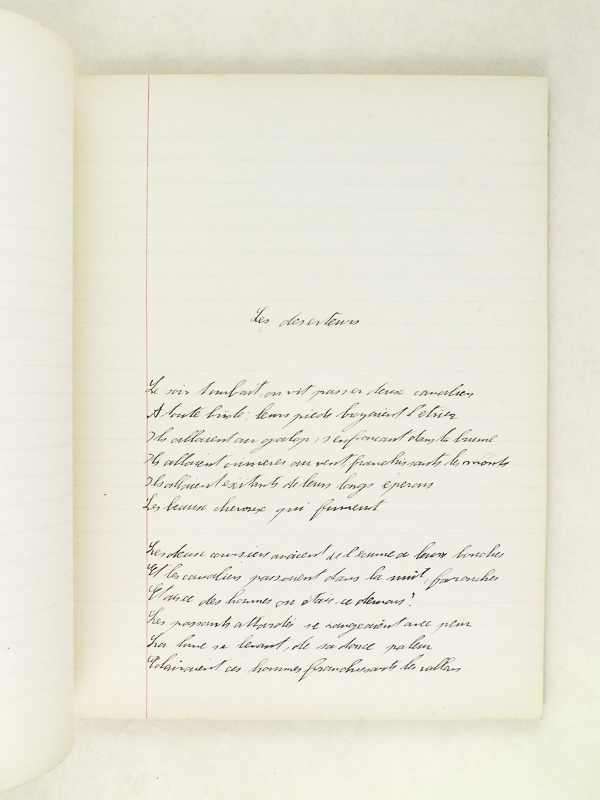 Les deserteurs
Le soir tombait, on vit passer deux cavaliers
A toute bride; leurs pieds broyaient l'etrier
Ils allaient au galop, s'enfoncant dans la brume
Ils allaient crinieres au vent franchissants les monts
Ils allaient excitants de leurs longs éperons
Les beaux chevaux qui fument
Les deux coursiers avaient de l'ecume a leurs bouches
Et les cavaliers passaient dans la nuit, farouches
Etais ce des hommes ou étais ce demons?
Les passants attardés se rangeaient avec peur
La lune se levant, de sa douce paleur
Eclairaient ces hommes franchissants les vallons